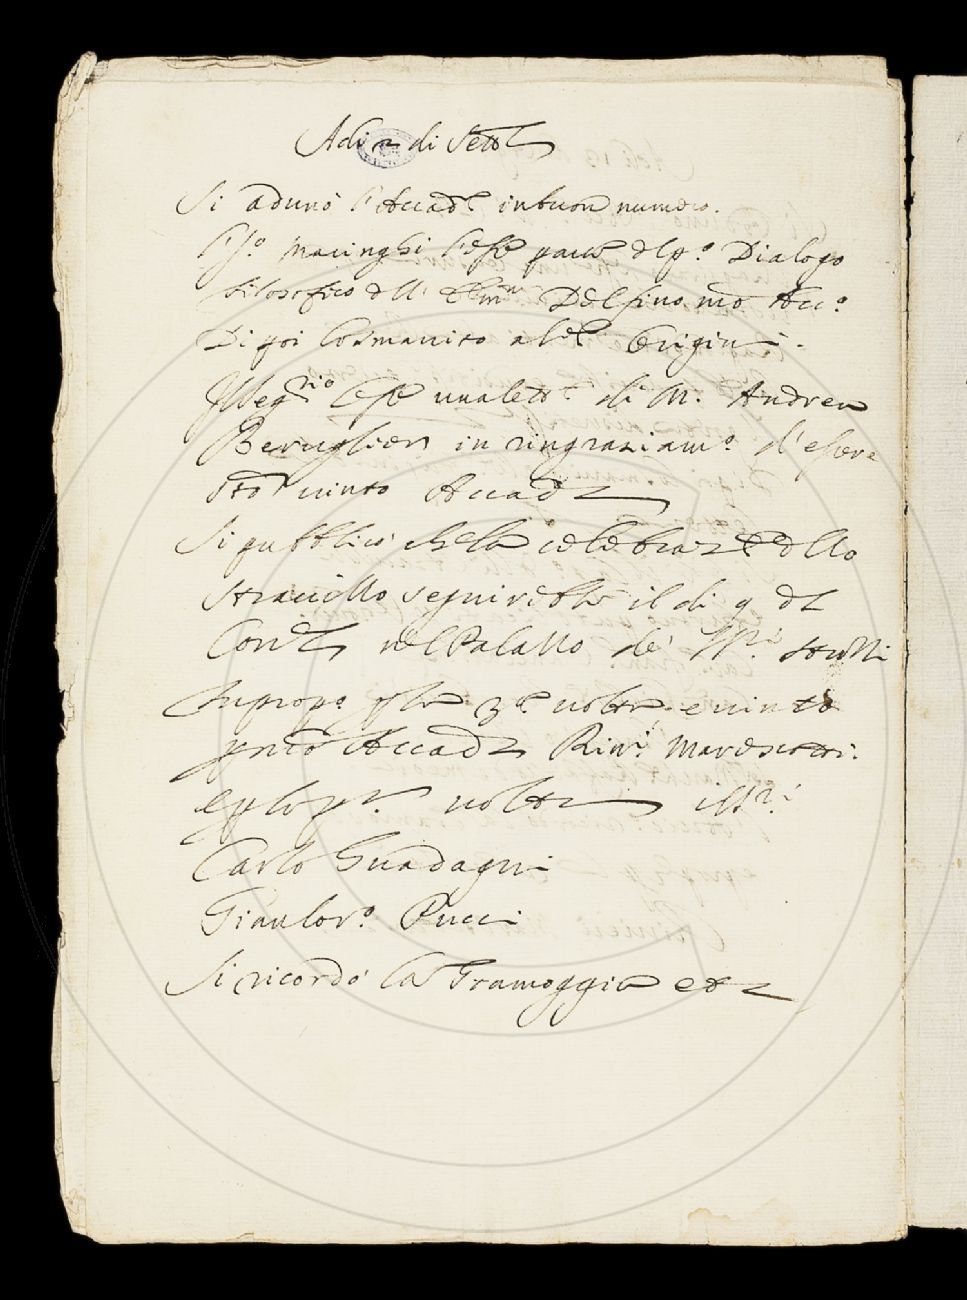 Adi 2 di Sett.e
Si adunò l'Accad.a in buon numero.
Il S.o Macinghi lesse parte del p.o Dialogo
filosofico dell' Em.mo Delfino n.ro Acc.o
Di poi Cosmanito alc.e Origini.
Il Seg.rio lesse una lett.a di M.r Andrea
Beruglieri in ringraziam.o d'essere
stato vinto Accad.o
Si pubblicò che la celebraz.e dello
Stravizzo seguirebbe il di 9 del
Corr.e nel Palazzo de' SS.ri
Si propose p la 3.a volta e vinto
p n.ro Accad.o Rin.i Marescotti.
E p la p.a volta i SS.ri
Carlo Guadagni
Gianlor.o Pucci
Si ricordò la Tramoggia et.c